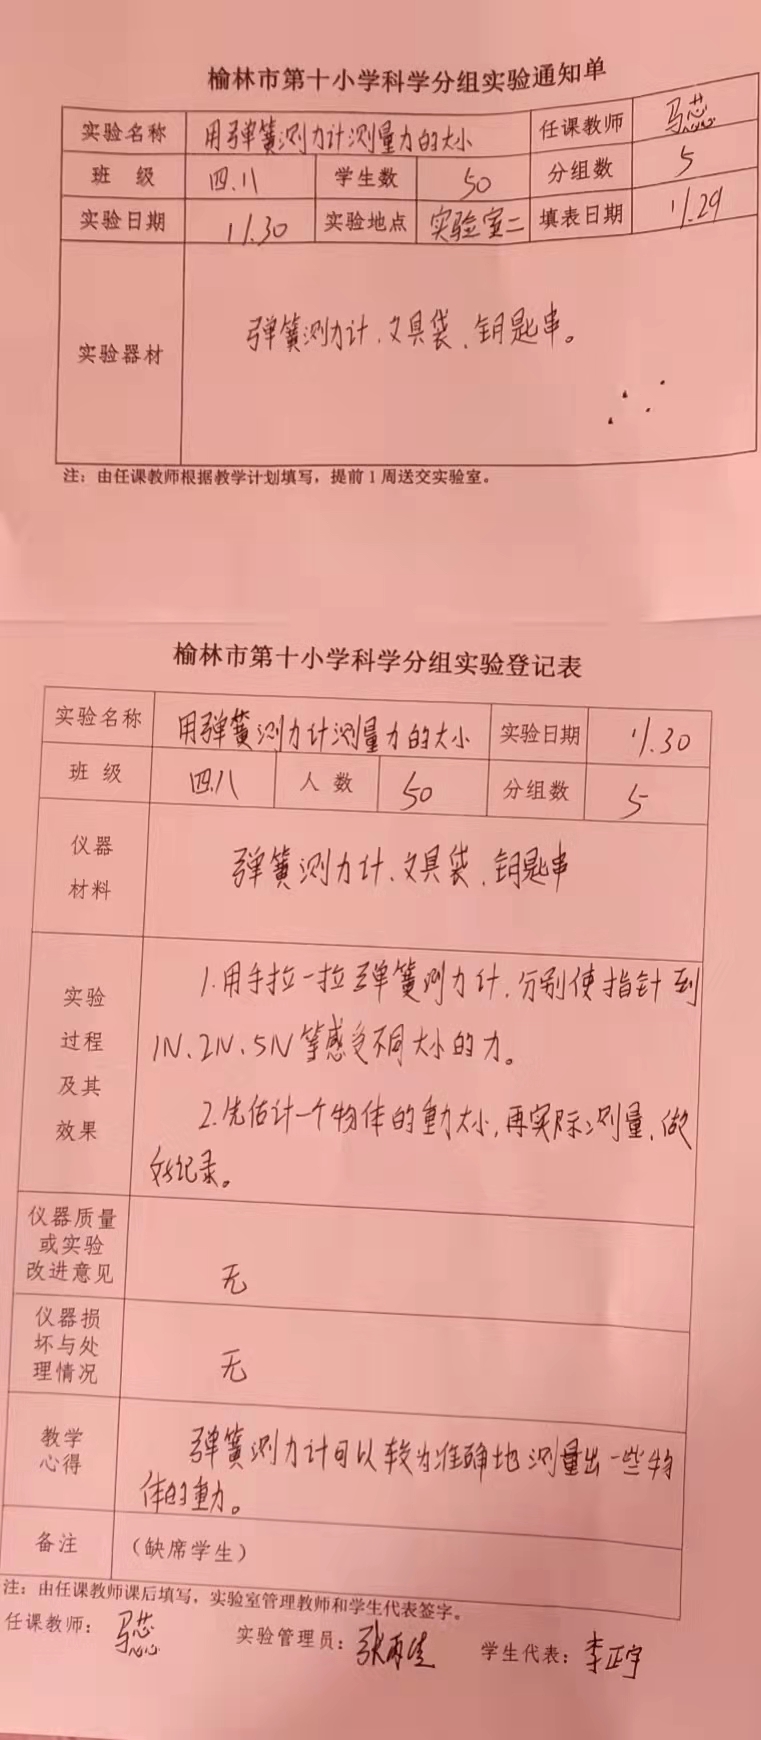 榆林市第十小学科学分组实验通知单
实验名称 用弹簧测力计测量力的大小 任课教师 马蕊
班 级 四.八 学生数 50 分组数 5
实验日期 11.30 实验地点 实验室二 填表日期 11.29
实验器材 弹簧测力计、文具袋、钥匙串。
注：由任课教师根据教学计划填写，提前1周送交实验室。
榆林市第十小学科学分组实验登记表
实验名称 用弹簧测力计测量力的大小 实验日期 11.30
班 级 四.八 人 数 50 分组数 5
仪器
材料
弹簧测力计、文具袋、钥匙串
实验
过程
及其
效果
1.用手拉一拉弹簧测力计，分别使指针到
1N、2N、5N等感受不同大小的力。
2.先估计一个物体的重力大小，再实际测量，做
好记录。
仪器质量
或实验
改进意见
无
仪器损
坏与处
理情况
无
教学
心得
弹簧测力计可以较为准确地测量出一些物
体的重力。
备注 （缺席学生）
注：由任课教师课后填写，实验室管理教师和学生代表签字。
任课教师：马蕊 实验管理员：张 学生代表：李正宇